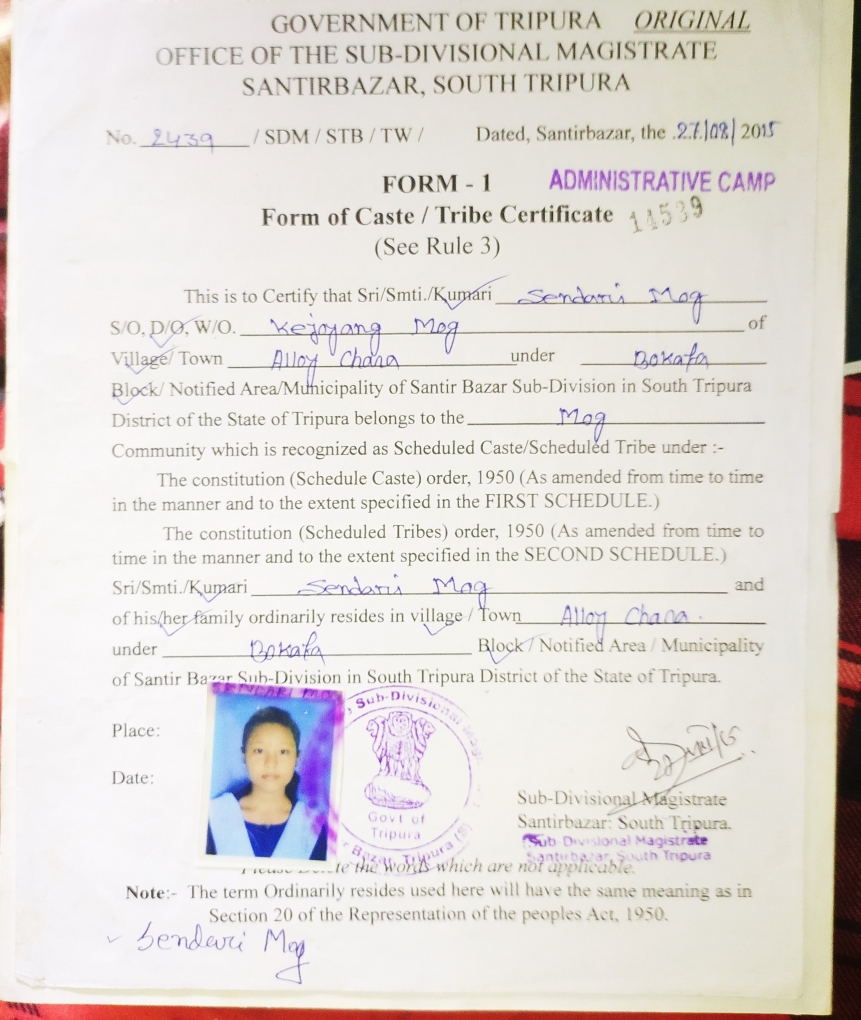 GOVERNMENT OF TRIPURA ORIGINAL
OFFICE OF THE SUB-DIVISIONAL MAGISTRATE
SANTIRBAZAR, SOUTH TRIPURA
No. 2439 / SDM / STB / TW / Dated, Santirbazar, the .27/08/ 2015
FORM - 1 ADMINISTRATIVE CAMP
Form of Caste / Tribe Certificate 14539
(See Rule 3)
This is to Certify that Sri/Smti./Kumari Sendari Mog
S/O, D/O, W/O. Kejoyang Mog of
Village/ Town Alloy Chara under Bokafa
Block/ Notified Area/Municipality of Santir Bazar Sub-Division in South Tripura
District of the State of Tripura belongs to the Mog
Community which is recognized as Scheduled Caste/Scheduled Tribe under :-
The constitution (Schedule Caste) order, 1950 (As amended from time to time
in the manner and to the extent specified in the FIRST SCHEDULE.)
The constitution (Scheduled Tribes) order, 1950 (As amended from time to
time in the manner and to the extent specified in the SECOND SCHEDULE.)
Sri/Smti./Kumari Sendari Mog and
of his/her family ordinarily resides in village / Town Alloy Chara.
under Bokafa Block / Notified Area / Municipality
of Santir Bazar Sub-Division in South Tripura District of the State of Tripura.
SENDARI MOG
Sub-Divisional
Place:
Date:
Govt of
Tripura
Bazar, Tripura (S)
Sub-Divisional Magistrate
Santirbazar: South Tripura.
Sub Divisional Magistrate
Santirbazar, South Tripura
the words which are not applicable.
Note:- The term Ordinarily resides used here will have the same meaning as in
Section 20 of the Representation of the peoples Act, 1950.
Sendari Mog